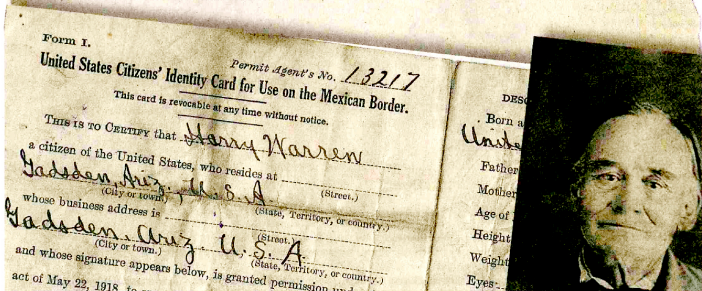 Form I.
Permit Agent's No. 13217
United States Citizens' Identity Card for Use on the Mexican Border.
This card is revocable at any time without notice.
This is to Certify that Harry Warren
a citizen of the United States, who resides at
(Street.)
Gadsden, Ariz., U.S.A.
(City or town.) (State, Territory, or country.)
whose business address is
(Street.)
Gadsden, Ariz. U.S.A
(City or town.) (State, Territory, or country.)
and whose signature appears below, is granted permission und
act of May 22, 1918, to
DESC
Born a
Unite
Father
Mother
Age of
Height
Weight
Eyes